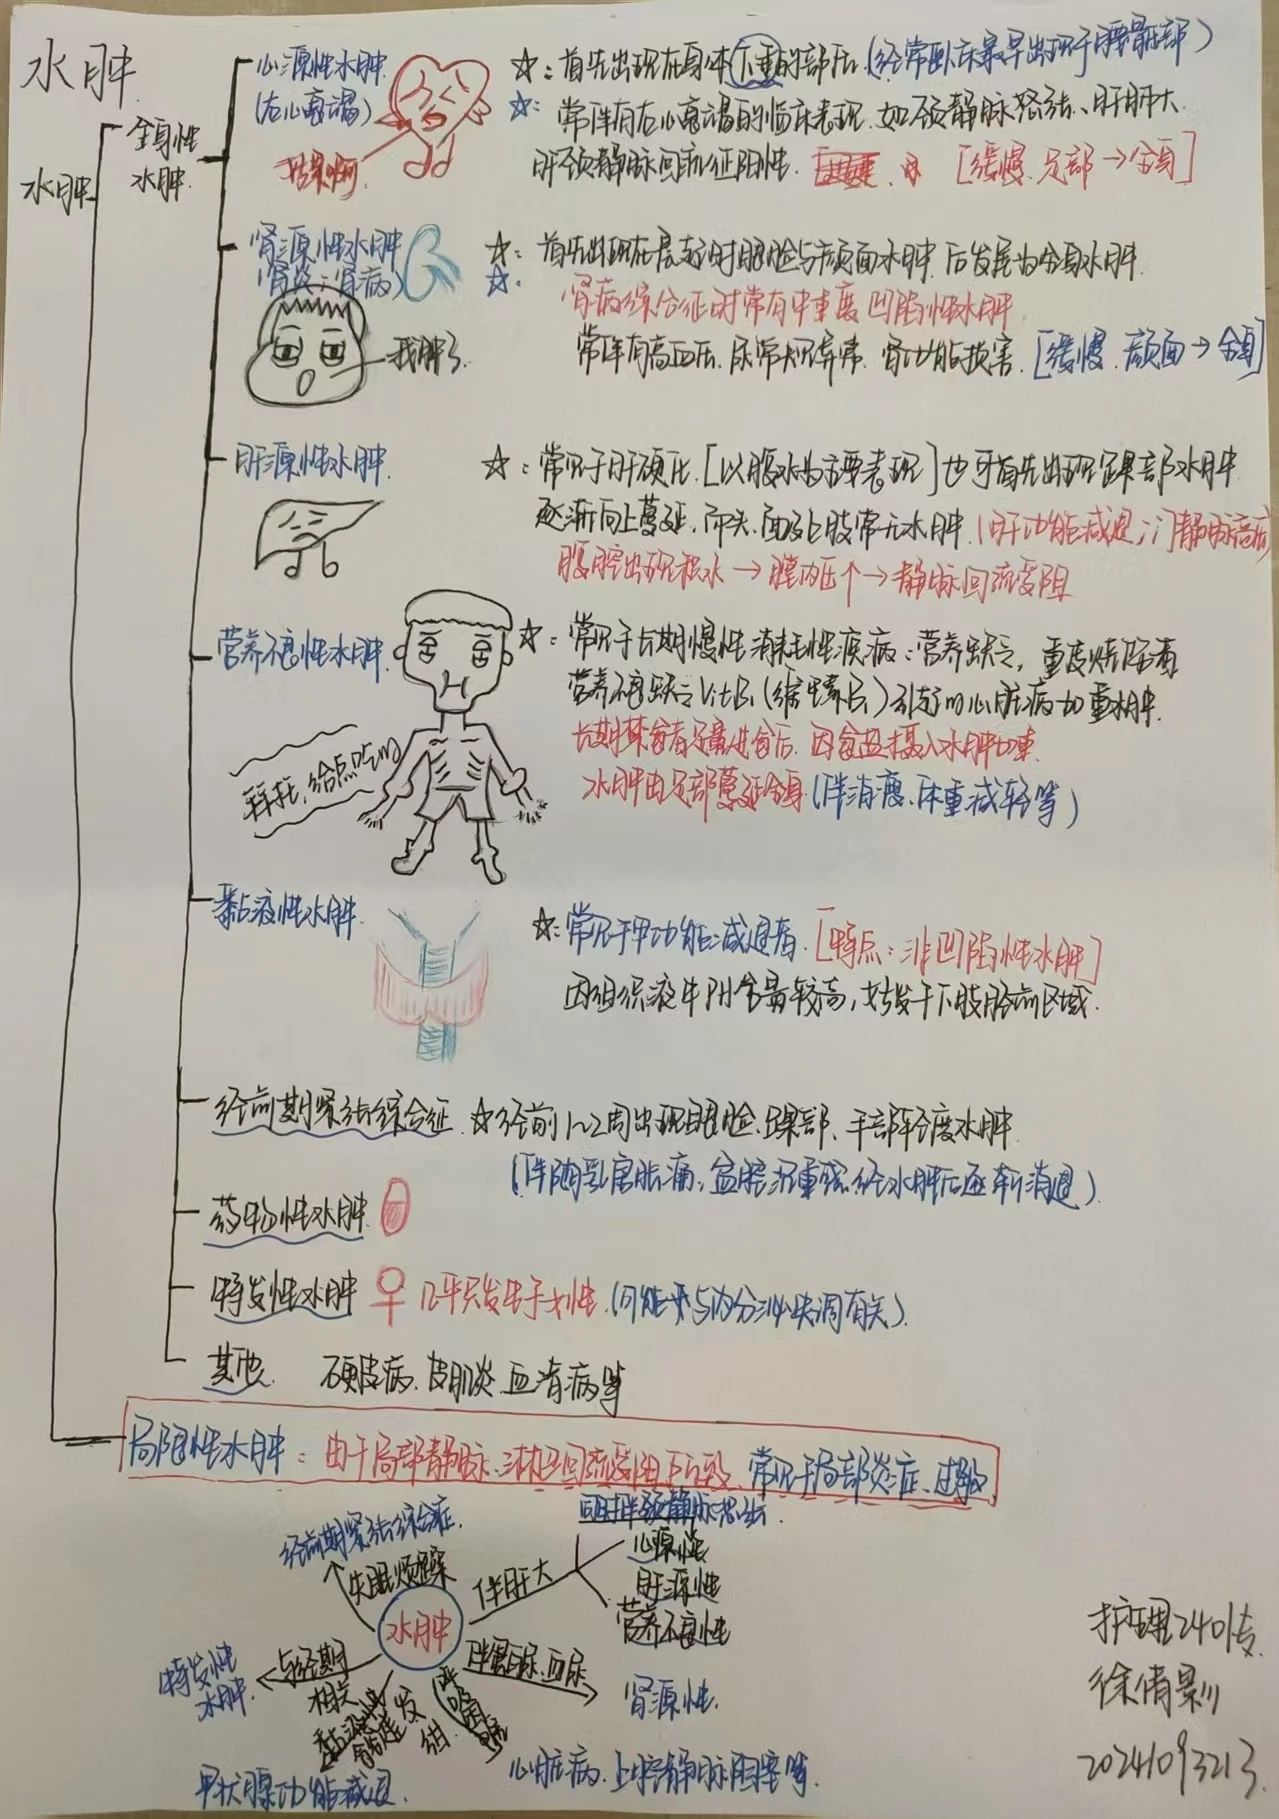 水肿
水肿
全身性
水肿
心源性水肿
(右心衰竭)
☆: 首先出现在身体下垂的部位(经常卧床最早出现于腰骶部)
☆: 常伴有右心衰竭的临床表现 如颈静脉怒张、肝肿大
肝颈静脉回流征阳性. [缓慢 足部→全身]
肾源性水肿
(肾炎;肾病)
☆: 首先出现在晨起时眼睑与颜面水肿 后发展为全身水肿.
☆.
肾病综合征时常有中重度凹陷性水肿
常伴有高血压、尿常规异常、肾功能损害. [缓慢 颜面→全身]
我肿了
肝源性水肿.
☆: 常见于肝硬化. [以腹水为主要表现]也可首先出现踝部水肿
逐渐向上蔓延. 而头、面及上肢常无水肿(肝功能减退;门静脉高压)
腹腔出现积水→腹内压↑→静脉回流受阻
营养不良性水肿
☆: 常见于长期慢性消耗性疾病:营养缺乏, 重度烧伤
营养不良缺乏VitB₁(维生素B₁)引起的心脏病加重水肿.
长期禁食者足量进食后 因食盐摄入水肿加重
水肿由足部蔓延全身(伴消瘦、体重减轻等)
拜托,给点吃的
黏液性水肿
☆: 常见于甲功能减退者. [特点:非凹陷性水肿]
因组织液中所含量较高,好发于下肢胫前区域.
经前期紧张综合征 ☆经前1~2周出现眼睑、踝部、手部轻度水肿
(伴随乳房胀痛;盆腔沉重感.经水肿后逐渐消退)
药物性水肿
特发性水肿 ♀ 几乎只发生于女性.(可能与内分泌失调有关)
其他. 硬皮病.皮肌炎.血清病等
局限性水肿:由于局部静脉.淋巴回流受阻所致.常见于局部炎症、过敏
经前期紧张综合症.
失眠烦躁
水肿
伴肝大
同时伴颈静脉怒张.
心源性
肝源性
营养不良性
伴蛋白尿.血尿
肾源性.
与经期
相关
特发性
水肿
甲状腺功能减退.
心脏病.上腔静脉阻塞等.
护理2401专
20241093213